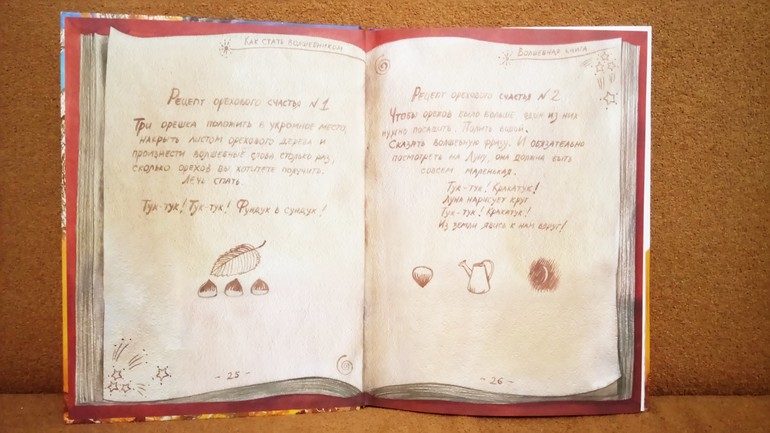 Как стать волшебником
Рецепт орехового счастья №1
Три орешка положить в укромное место,
накрыть листом орехового дерева и
произнести волшебные слова столько раз,
сколько орехов вы хотите получить.
Лечь спать.
Тук-тук! Тук-тук! Фундук в сундук!
- 25 -
Волшебная книга
Рецепт орехового счастья №2
Чтобы орехов было больше один из них
нужно посадить. Полить водой.
Сказать волшебную фразу. И обязательно
посмотреть на Луну, она должна быть
совсем маленькая.
Тук-тук! Кракатук!
Луна нарисует круг
Тук-тук! Кракатук!
Из земли к нам вдруг!
- 26 -